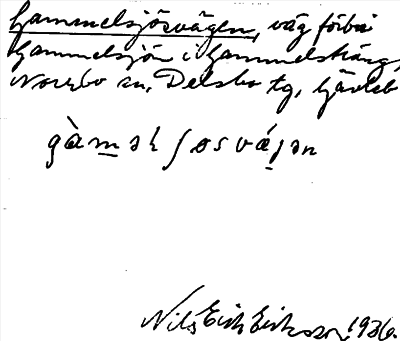 Gammelsjösvägen, väg förbi
Gammelsjön i Gammelsträng,
Norrbo sn, Delsbo tg, Gävleb
gàməlʃøsvá̱jən
Nils Erik Eriksson, 1936.